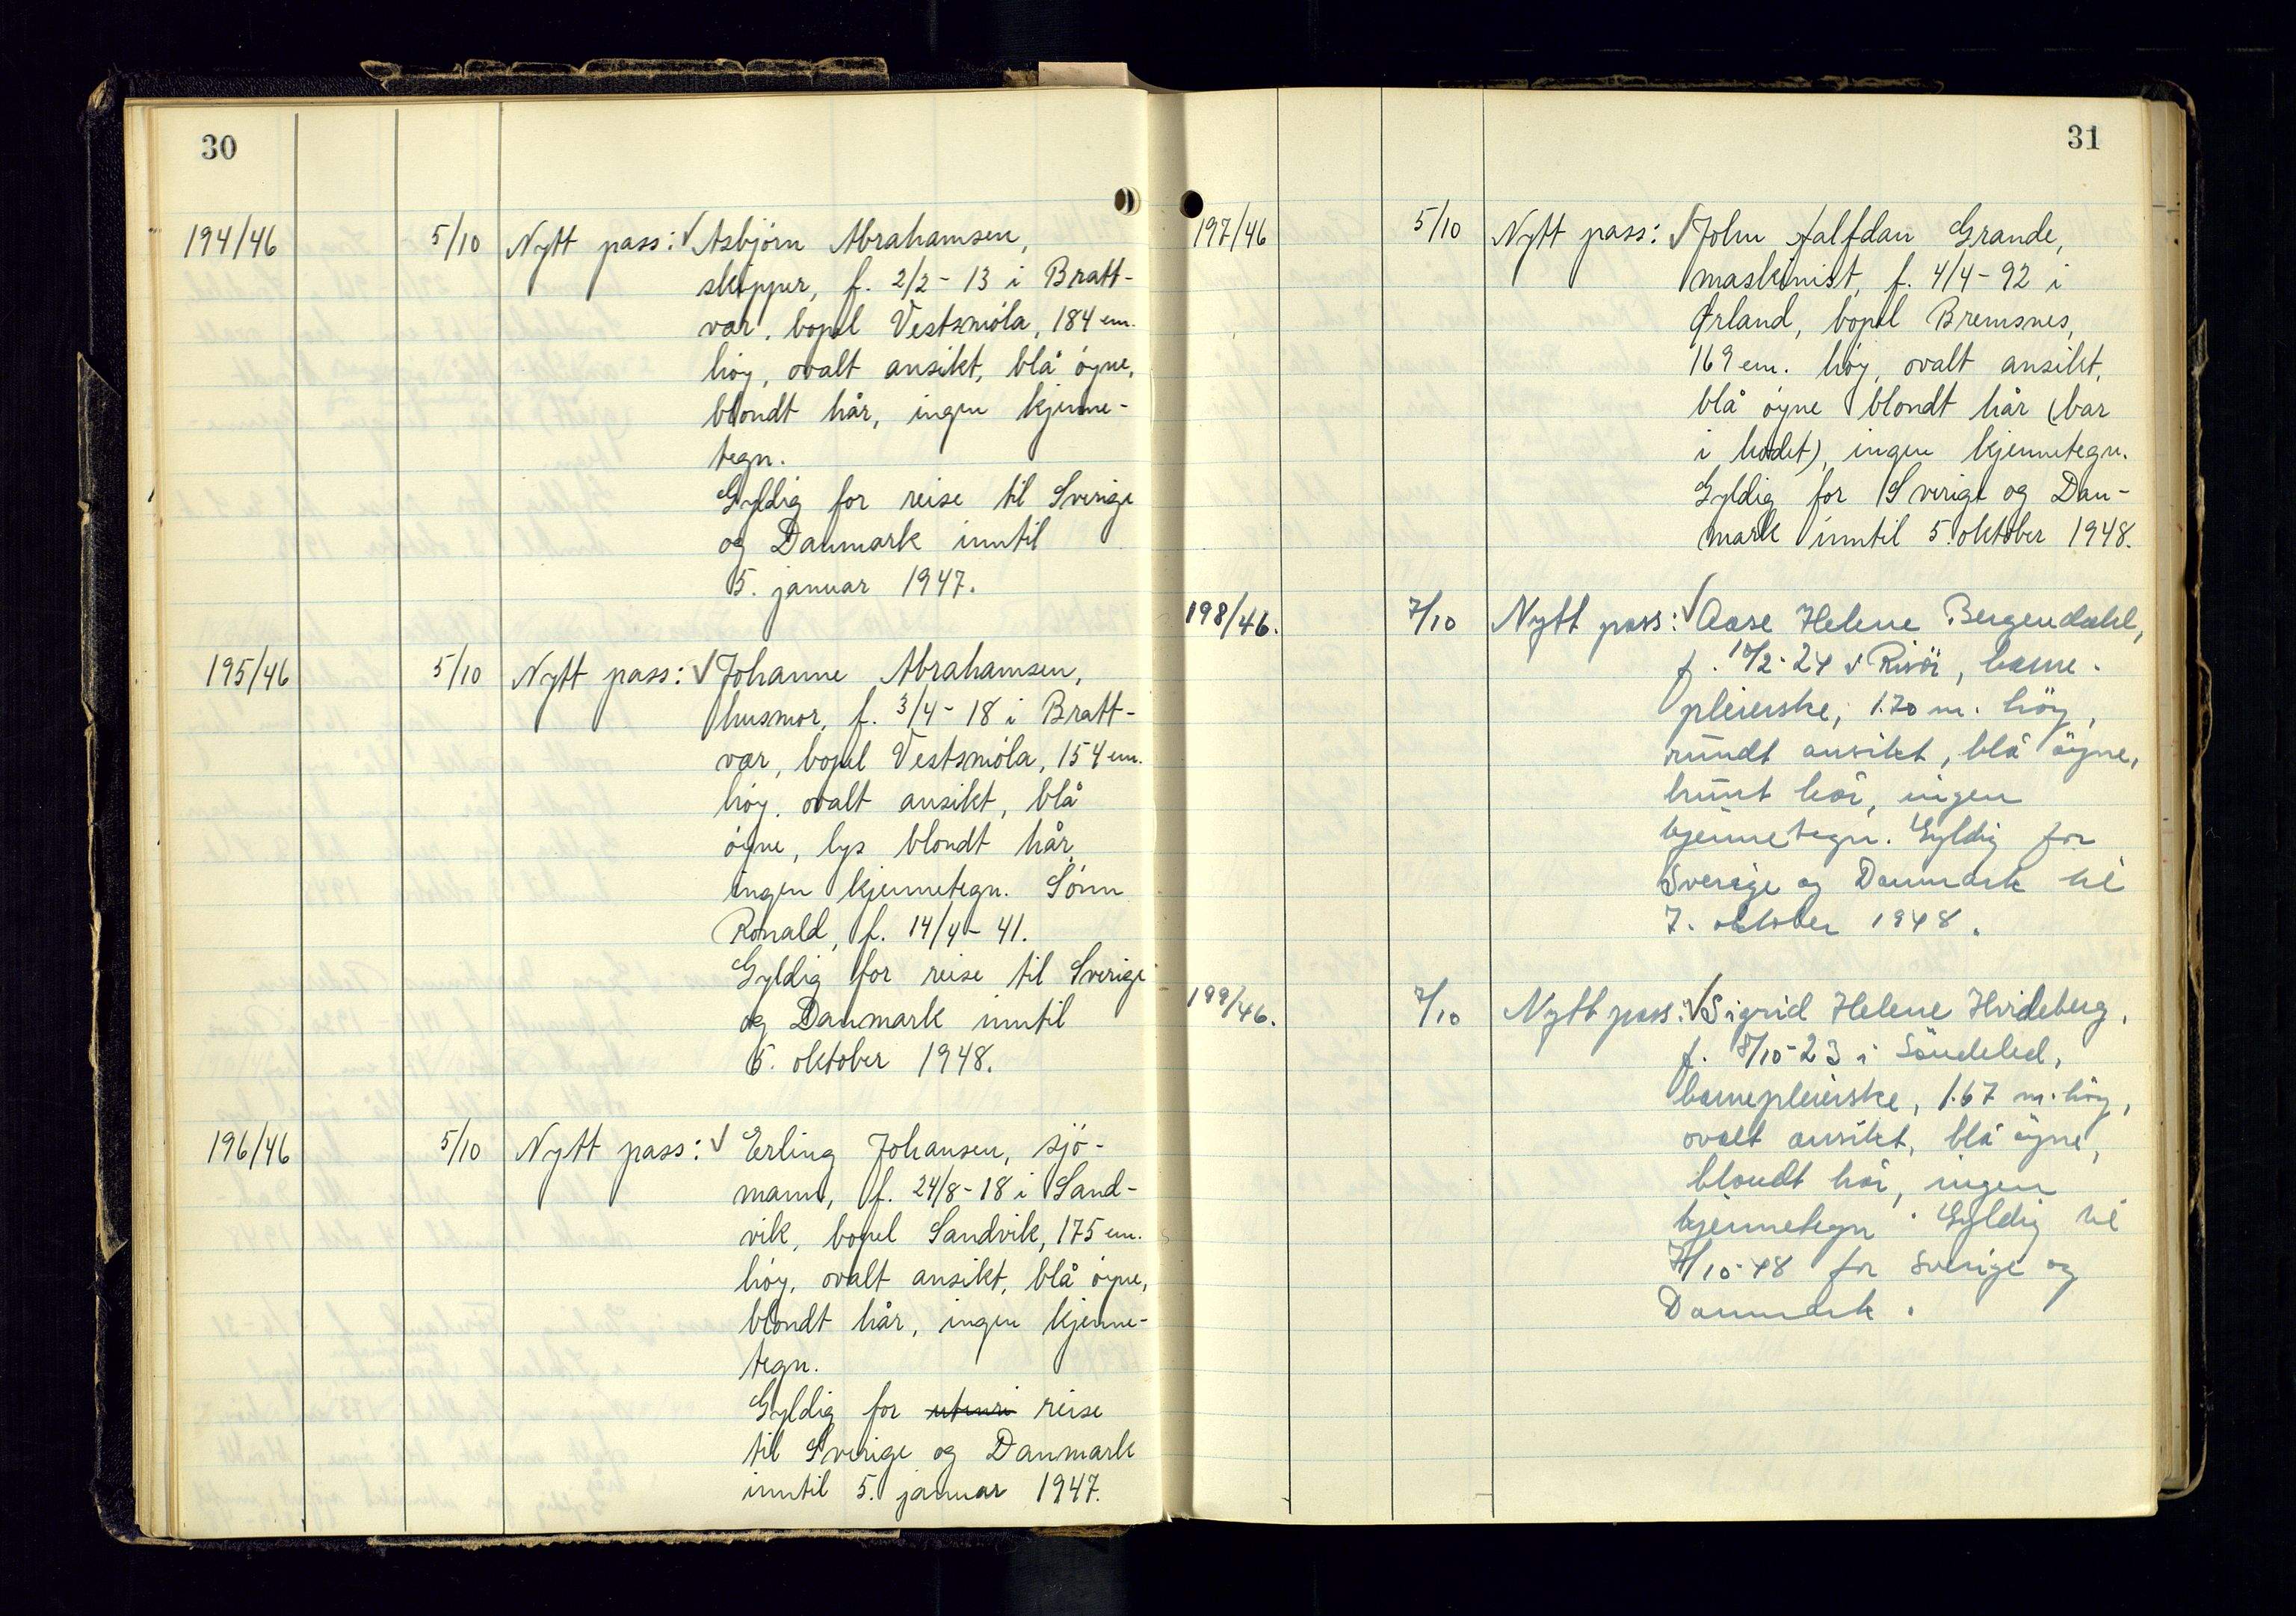 30
194/46 5/10 Nytt pass: √ Asbjörn Abrahamsen,
skipper, f. 2/2 - 13 i Bratt-
vær, bopel Vestsmöla, 184 cm.
höy, ovalt ansikt, blå öyne,
blondt hår, ingen kjenne-
tegn.
Gyldig for reise til Sverige
og Danmark inntil
5. januar 1947.
195/46 5/10 Nytt pass: √ Johanne Abrahamsen,
husmor, f. 3/4 - 18 i Bratt-
vær, bopel Vestsmöla, 154 cm.
höy, ovalt ansikt, blå
öyne, lys blondt hår,
ingen kjennetegn. Sönn
Ronald, f. 14/4 - 41.
Gyldig for reise til Sverige
og Danmark inntil
5. oktober 1948.
196/46 5/10 Nytt pass: √ Erling Johansen, sjö-
mann, f. 24/8 - 18 i Sand-
vik, bopel Sandvik, 175 cm.
höy, ovalt ansikt, blå öyne,
blondt hår, ingen kjenne-
tegn.
Gyldig for utenri reise
til Sverige og Danmark
inntil 5. januar 1947.
31
197/46 5/10 Nytt pass: √ John Halfdan Grande,
maskinist, f. 4/4 - 92 i
Ørland, bopel Bremsnes,
169 cm. höy, ovalt ansikt,
blå öyne blondt hår (bar
i hodet), ingen kjennetegn.
Gyldig for Sverige og Dan-
mark inntil 5. oktober 1948.
198/46. 7/10 Nytt pass: √ Aase Helene Bergendahl,
f. /2-24 i Risör, barne-
pleierske, 1.70 m. höy,
rundt ansikt, blå öyne,
brunt hår, ingen
kjennetegn. Gyldig for
Sverige og Danmark til
7. oktober 1948.
199/46. 7/10 Nytt pass: √ Sigrid Helene Hvideberg,
f. 8/10-23 i Söndeled,
barnepleierske, 1.67 m. höy,
ovalt ansikt, blå öyne,
blondt hår, ingen
kjennetegn. Gyldig til
7/10-48 for Sverige og
Danmark.